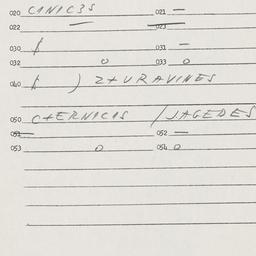 020 CINIC3S 021 —
022 — 023
030 / 031 —
032 0 033 0
040 ) ZTURAVINES
050 CTERNICIS / JAGEDES
051 052 —
053 0 054 0